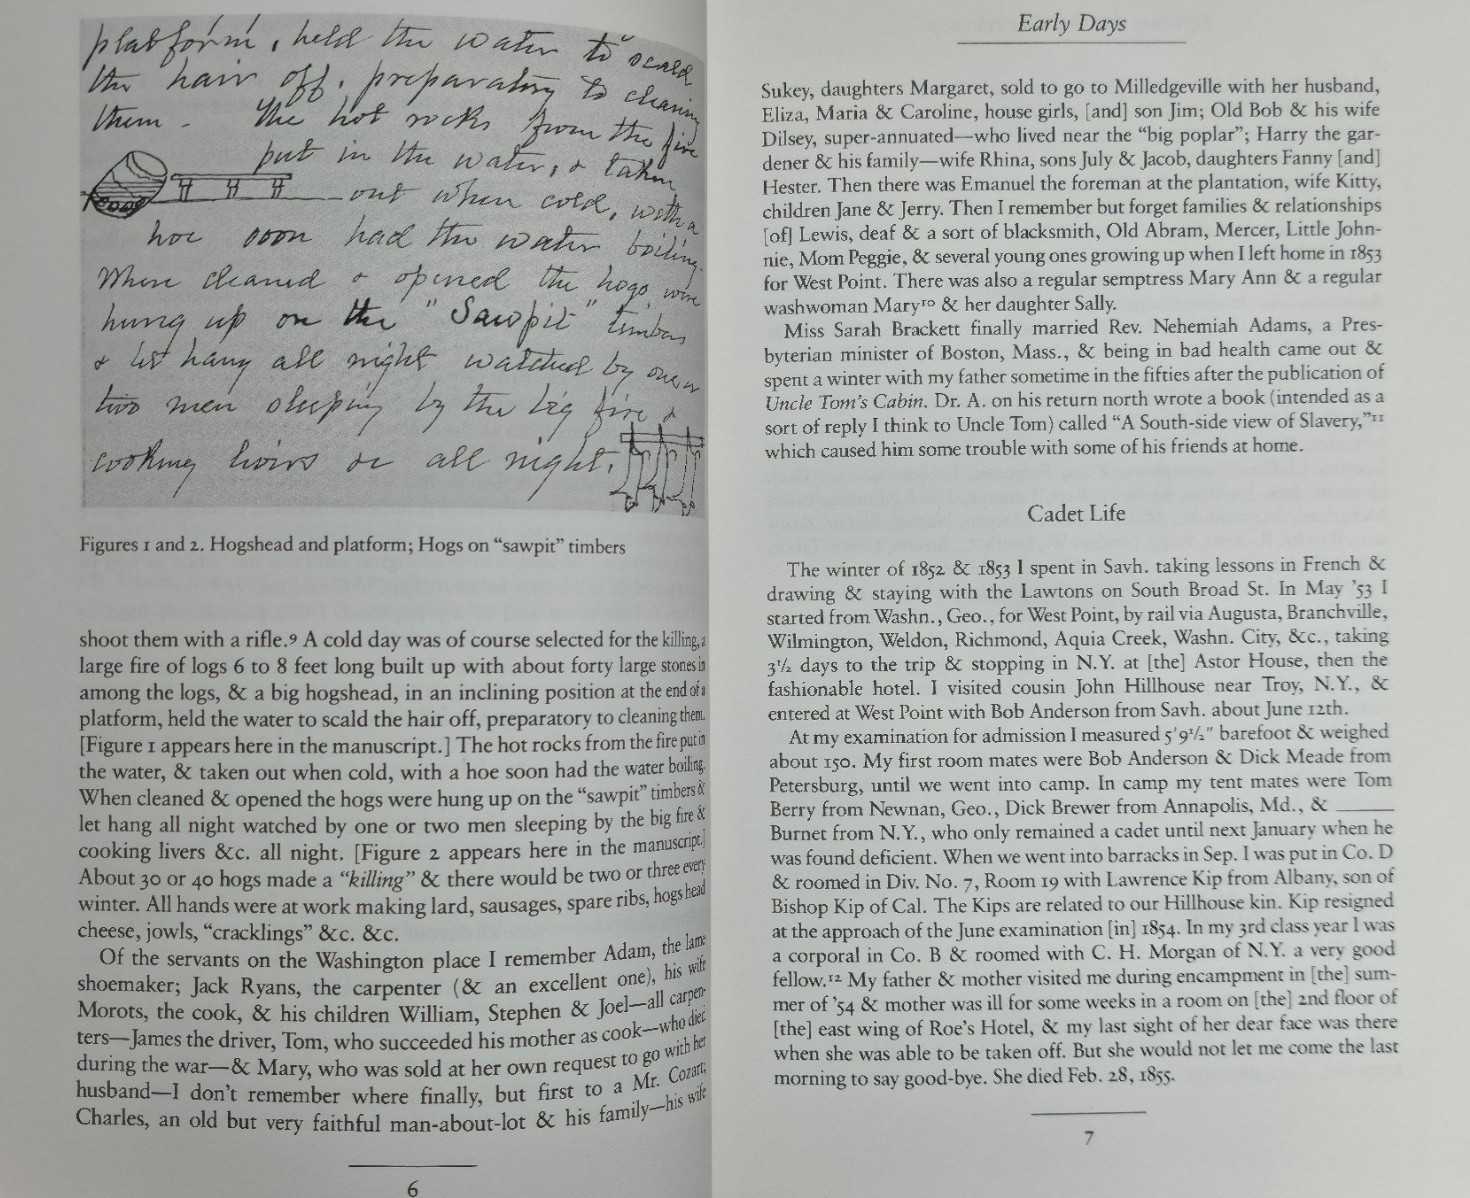 platform, held the water to scald
the hair off, preparatory to cleaning
them - The hot rocks from the fire
put in the water, & taken
out when cold, with a
hoe soon had the water boiling.
When cleaned & opened the hogs were
hung up on the "Sawpit" timbers
& let hang all night watched by one or
two men sleeping by the big fire &
cooking livers &c all night.
Figures 1 and 2. Hogshead and platform; Hogs on “sawpit” timbers
shoot them with a rifle.⁹ A cold day was of course selected for the killing, a
large fire of logs 6 to 8 feet long built up with about forty large stones in
among the logs, & a big hogshead, in an inclining position at the end of a
platform, held the water to scald the hair off, preparatory to cleaning them.
[Figure 1 appears here in the manuscript.] The hot rocks from the fire put in
the water, & taken out when cold, with a hoe soon had the water boiling.
When cleaned & opened the hogs were hung up on the “sawpit” timbers &
let hang all night watched by one or two men sleeping by the big fire &
cooking livers &c. all night. [Figure 2 appears here in the manuscript.]
About 30 or 40 hogs made a “killing” & there would be two or three every
winter. All hands were at work making lard, sausages, spare ribs, hogs head
cheese, jowls, “cracklings” &c. &c.
Of the servants on the Washington place I remember Adam, the lame
shoemaker; Jack Ryans, the carpenter (& an excellent one), his wife
Morots, the cook, & his children William, Stephen & Joel—all carpen-
ters—James the driver, Tom, who succeeded his mother as cook—who died
during the war—& Mary, who was sold at her own request to go with her
husband—I don't remember where finally, but first to a Mr. Cozart;
Charles, an old but very faithful man-about-lot & his family—his wife
6
Early Days
Sukey, daughters Margaret, sold to go to Milledgeville with her husband,
Eliza, Maria & Caroline, house girls, [and] son Jim; Old Bob & his wife
Dilsey, super-annuated—who lived near the “big poplar”; Harry the gar-
dener & his family—wife Rhina, sons July & Jacob, daughters Fanny [and]
Hester. Then there was Emanuel the foreman at the plantation, wife Kitty,
children Jane & Jerry. Then I remember but forget families & relationships
[of] Lewis, deaf & a sort of blacksmith, Old Abram, Mercer, Little John-
nie, Mom Peggie, & several young ones growing up when I left home in 1853
for West Point. There was also a regular semptress Mary Ann & a regular
washwoman Mary¹⁰ & her daughter Sally.
Miss Sarah Brackett finally married Rev. Nehemiah Adams, a Pres-
byterian minister of Boston, Mass., & being in bad health came out &
spent a winter with my father sometime in the fifties after the publication of
Uncle Tom's Cabin. Dr. A. on his return north wrote a book (intended as a
sort of reply I think to Uncle Tom) called “A South-side view of Slavery,”¹¹
which caused him some trouble with some of his friends at home.
Cadet Life
The winter of 1852 & 1853 I spent in Savh. taking lessons in French &
drawing & staying with the Lawtons on South Broad St. In May '53 I
started from Washn., Geo., for West Point, by rail via Augusta, Branchville,
Wilmington, Weldon, Richmond, Aquia Creek, Washn. City, &c., taking
3½ days to the trip & stopping in N.Y. at [the] Astor House, then the
fashionable hotel. I visited cousin John Hillhouse near Troy, N.Y., &
entered at West Point with Bob Anderson from Savh. about June 12th.
At my examination for admission I measured 5'9½" barefoot & weighed
about 150. My first room mates were Bob Anderson & Dick Meade from
Petersburg, until we went into camp. In camp my tent mates were Tom
Berry from Newnan, Geo., Dick Brewer from Annapolis, Md., & ______
Burnet from N.Y., who only remained a cadet until next January when he
was found deficient. When we went into barracks in Sep. I was put in Co. D
& roomed in Div. No. 7, Room 19 with Lawrence Kip from Albany, son of
Bishop Kip of Cal. The Kips are related to our Hillhouse kin. Kip resigned
at the approach of the June examination [in] 1854. In my 3rd class year I was
a corporal in Co. B & roomed with C. H. Morgan of N.Y. a very good
fellow.¹² My father & mother visited me during encampment in [the] sum-
mer of '54 & mother was ill for some weeks in a room on [the] 2nd floor of
[the] east wing of Roe's Hotel, & my last sight of her dear face was there
when she was able to be taken off. But she would not let me come the last
morning to say good-bye. She died Feb. 28, 1855.
7